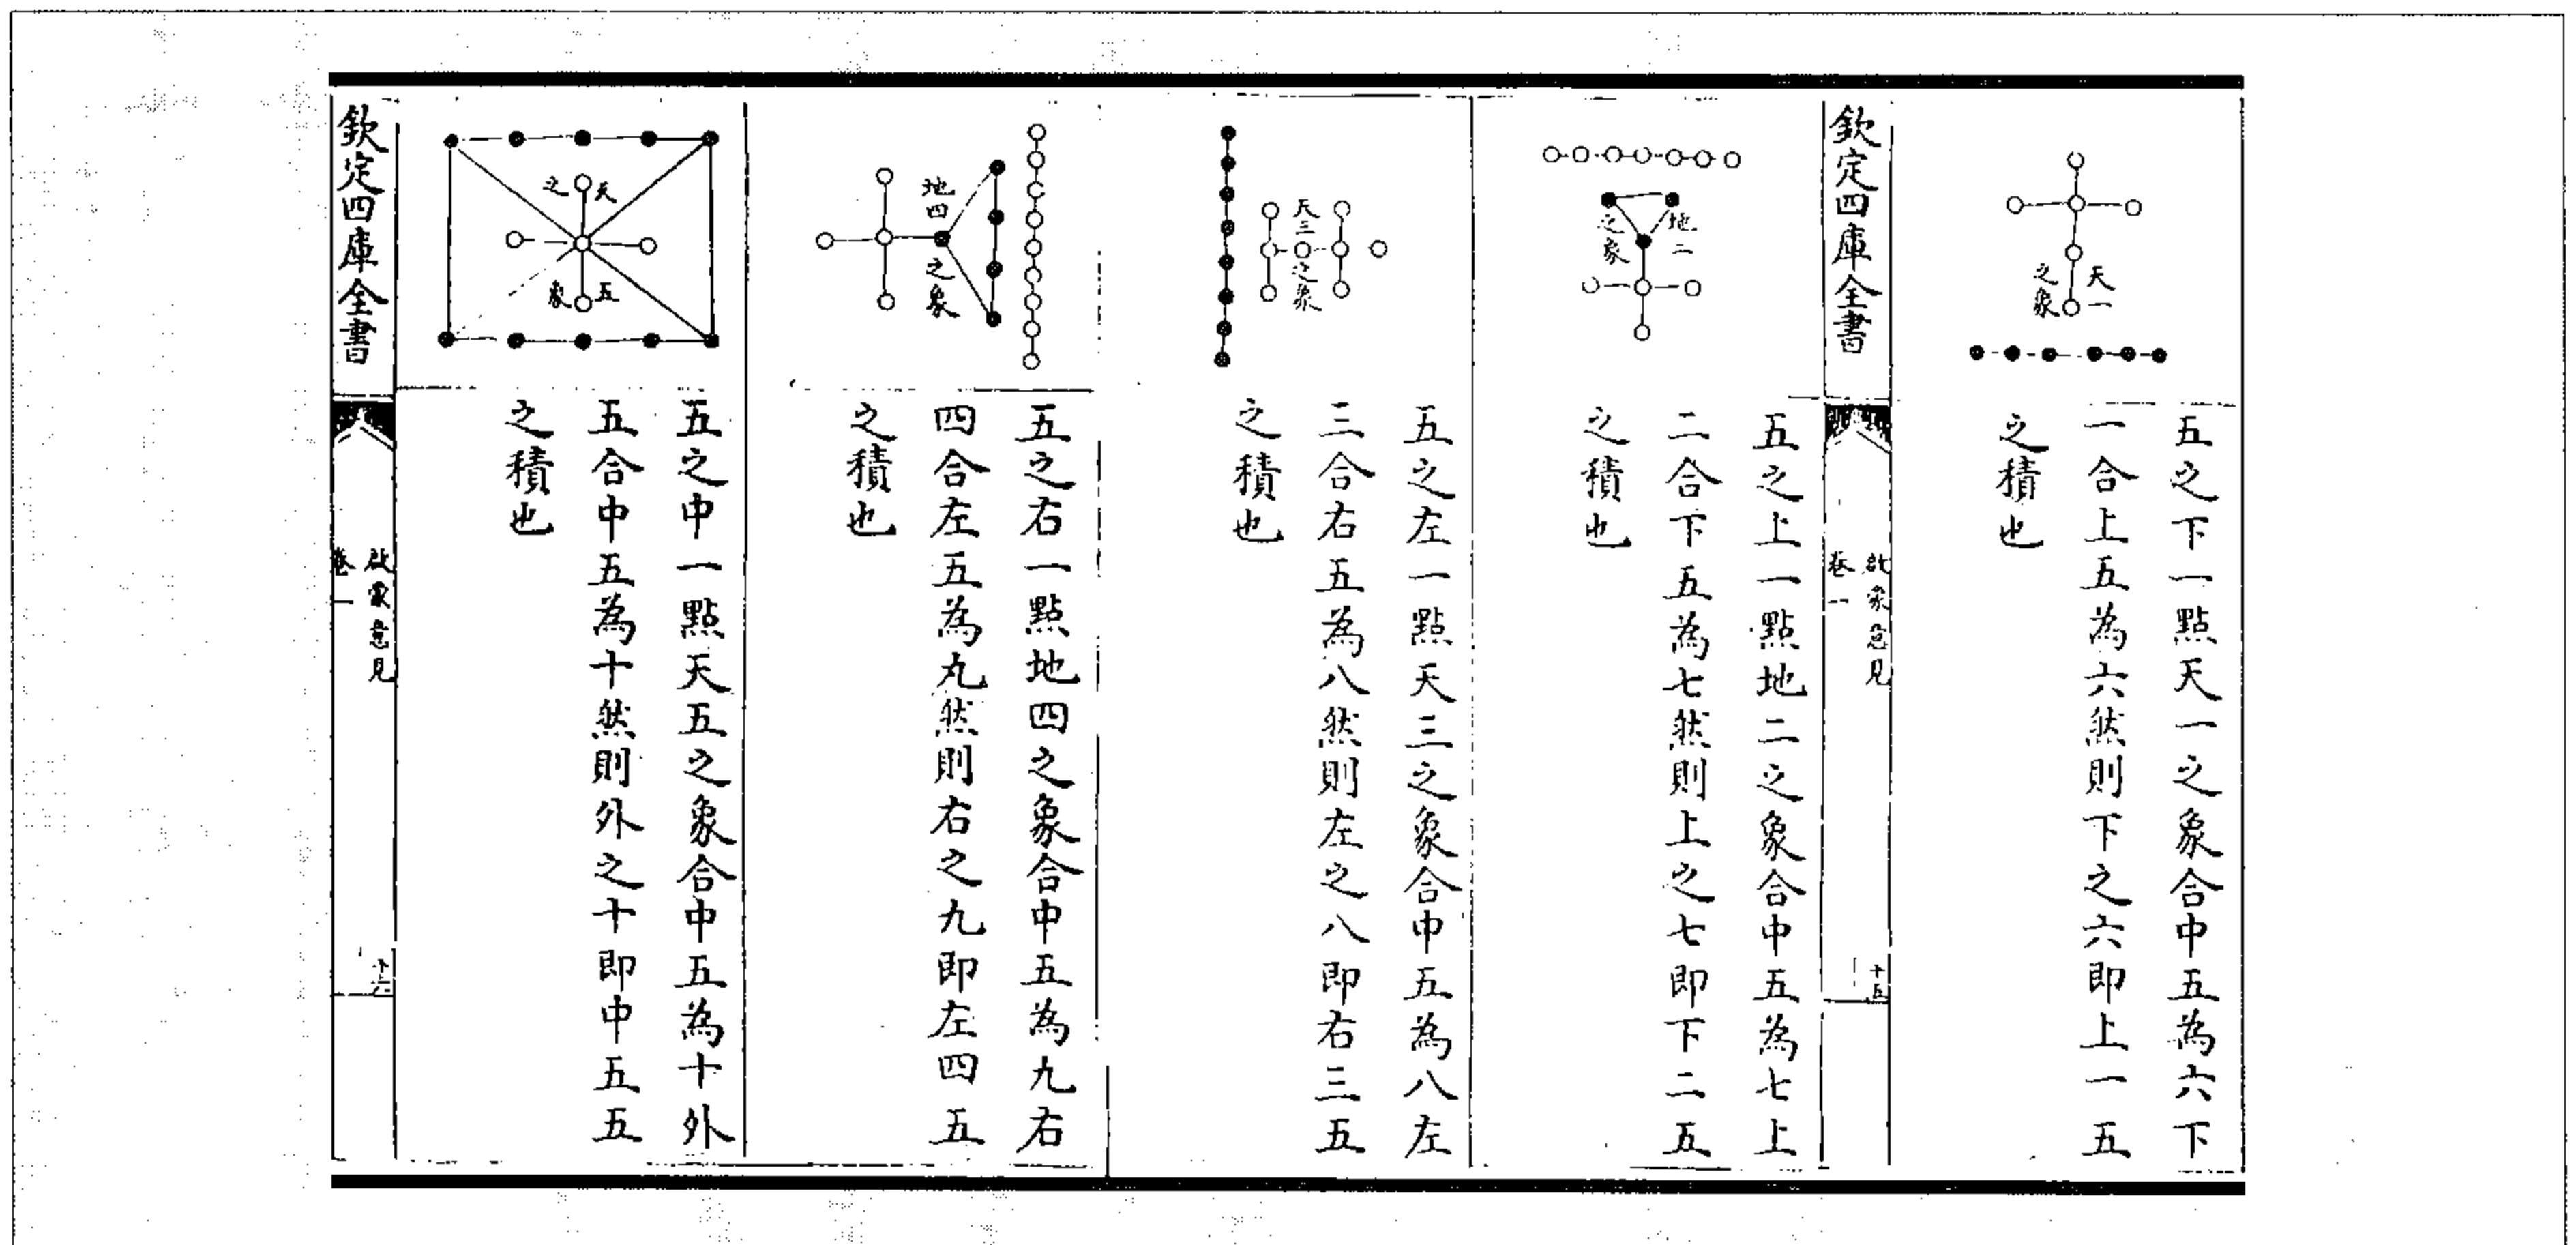 天一
之象
五之下一點天一之象合中五為六下
一合上五為六然則下之六即上一五
之積也
欽定四庫全書
啟蒙意見
卷一
十五
地二
之象
五之上一點地二之象合中五為七上
二合下五為七然則上之七即下二五
之積也
天三之象
五之左一點天三之象合中五為八左
三合右五為八然則左之八即右三五
之積也
地四之象
五之右一點地四之象合中五為九右
四合左五為丸然則右之九即左四五
之積也
天五
之象
五之中一點天五之象合中五為十外
五合中五為十然則外之十即中五五
之積也
欽定四庫全書
啟蒙意見
卷一
十六